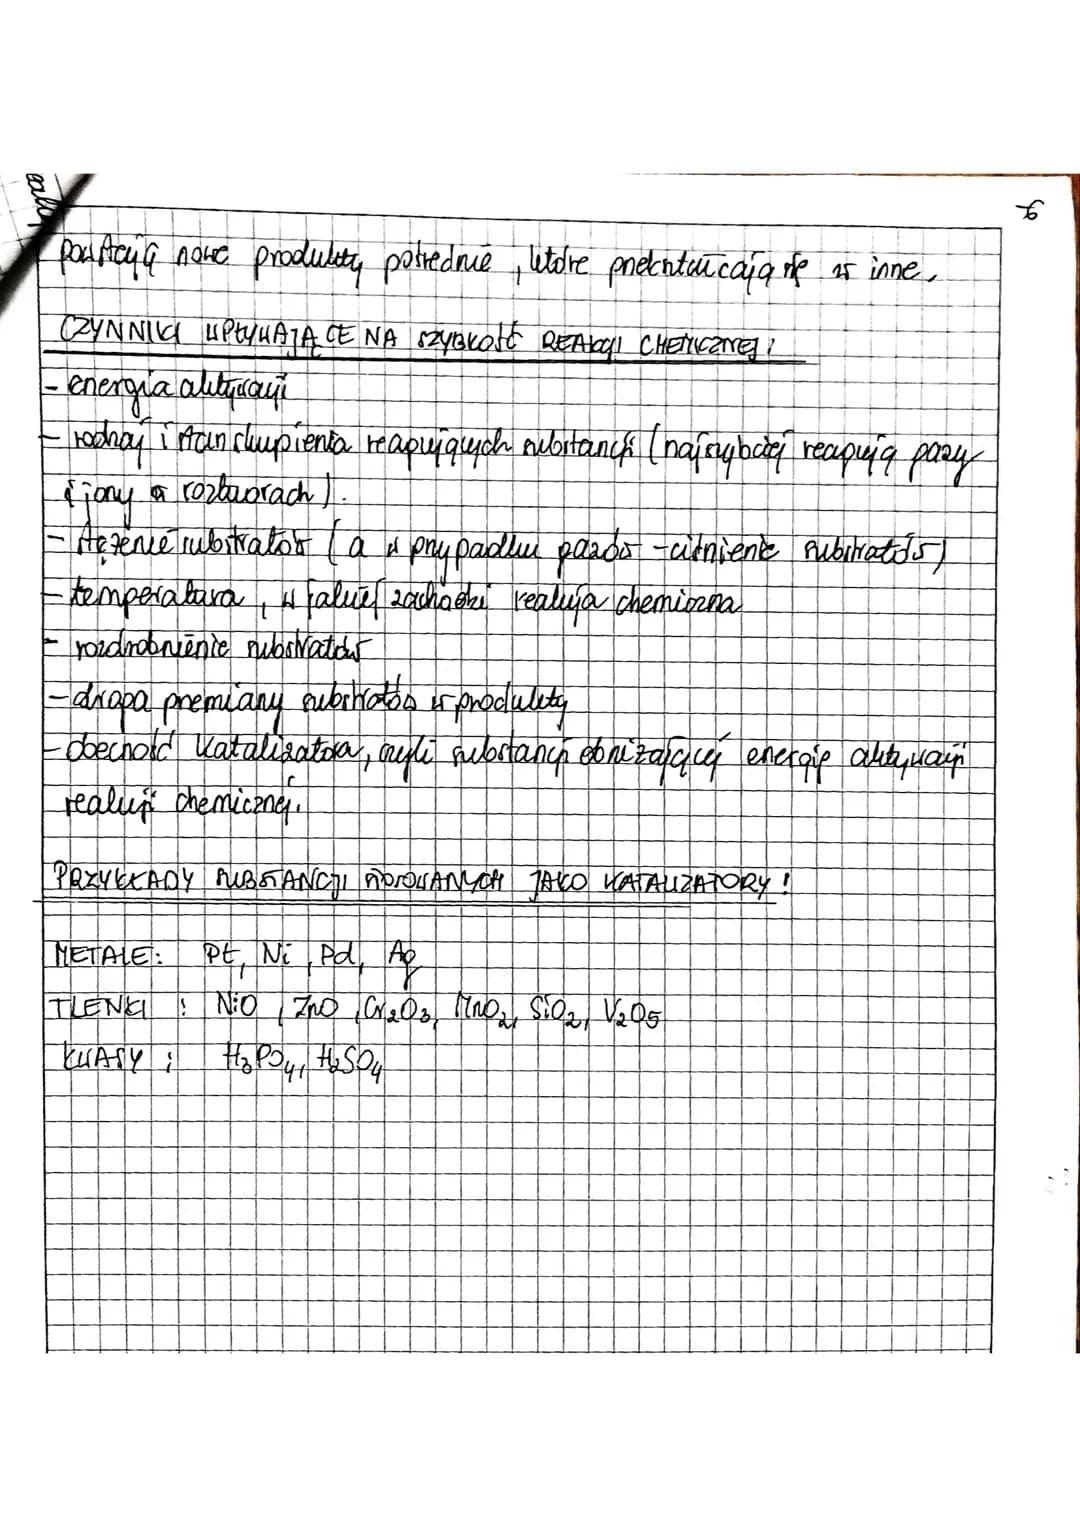 powstają nowe produkty pośrednie, które przekształcają się w inne.
CZYNNIKI WPŁYWAJĄCE NA SZYBKOŚĆ REAKCJI CHEMICZNEJ:
- energia aktywacji
- rodzaj i stan skupienia reagujących substancji (najszybciej reagują gazy
i jony w roztworach).
- stężenie substratów (a w przypadku gazów - ciśnienie substratów)
- temperatura, w jakiej zachodzi reakcja chemiczna
- rozdrobnienie substratów
- droga przemiany substratów w produkty
- obecność katalizatora, czyli substancji obniżającej energię aktywacji
reakcji chemicznej.
PRZYKŁADY SUBSTANCJI STOSOWANYCH JAKO KATALIZATORY:
METALE: Pt, Ni, Pd, Ag
TLENKI: NiO, ZnO, Cr₂O₃, MnO₂, SiO₂, V₂O₅
KWASY: H₃PO₄, H₂SO₄